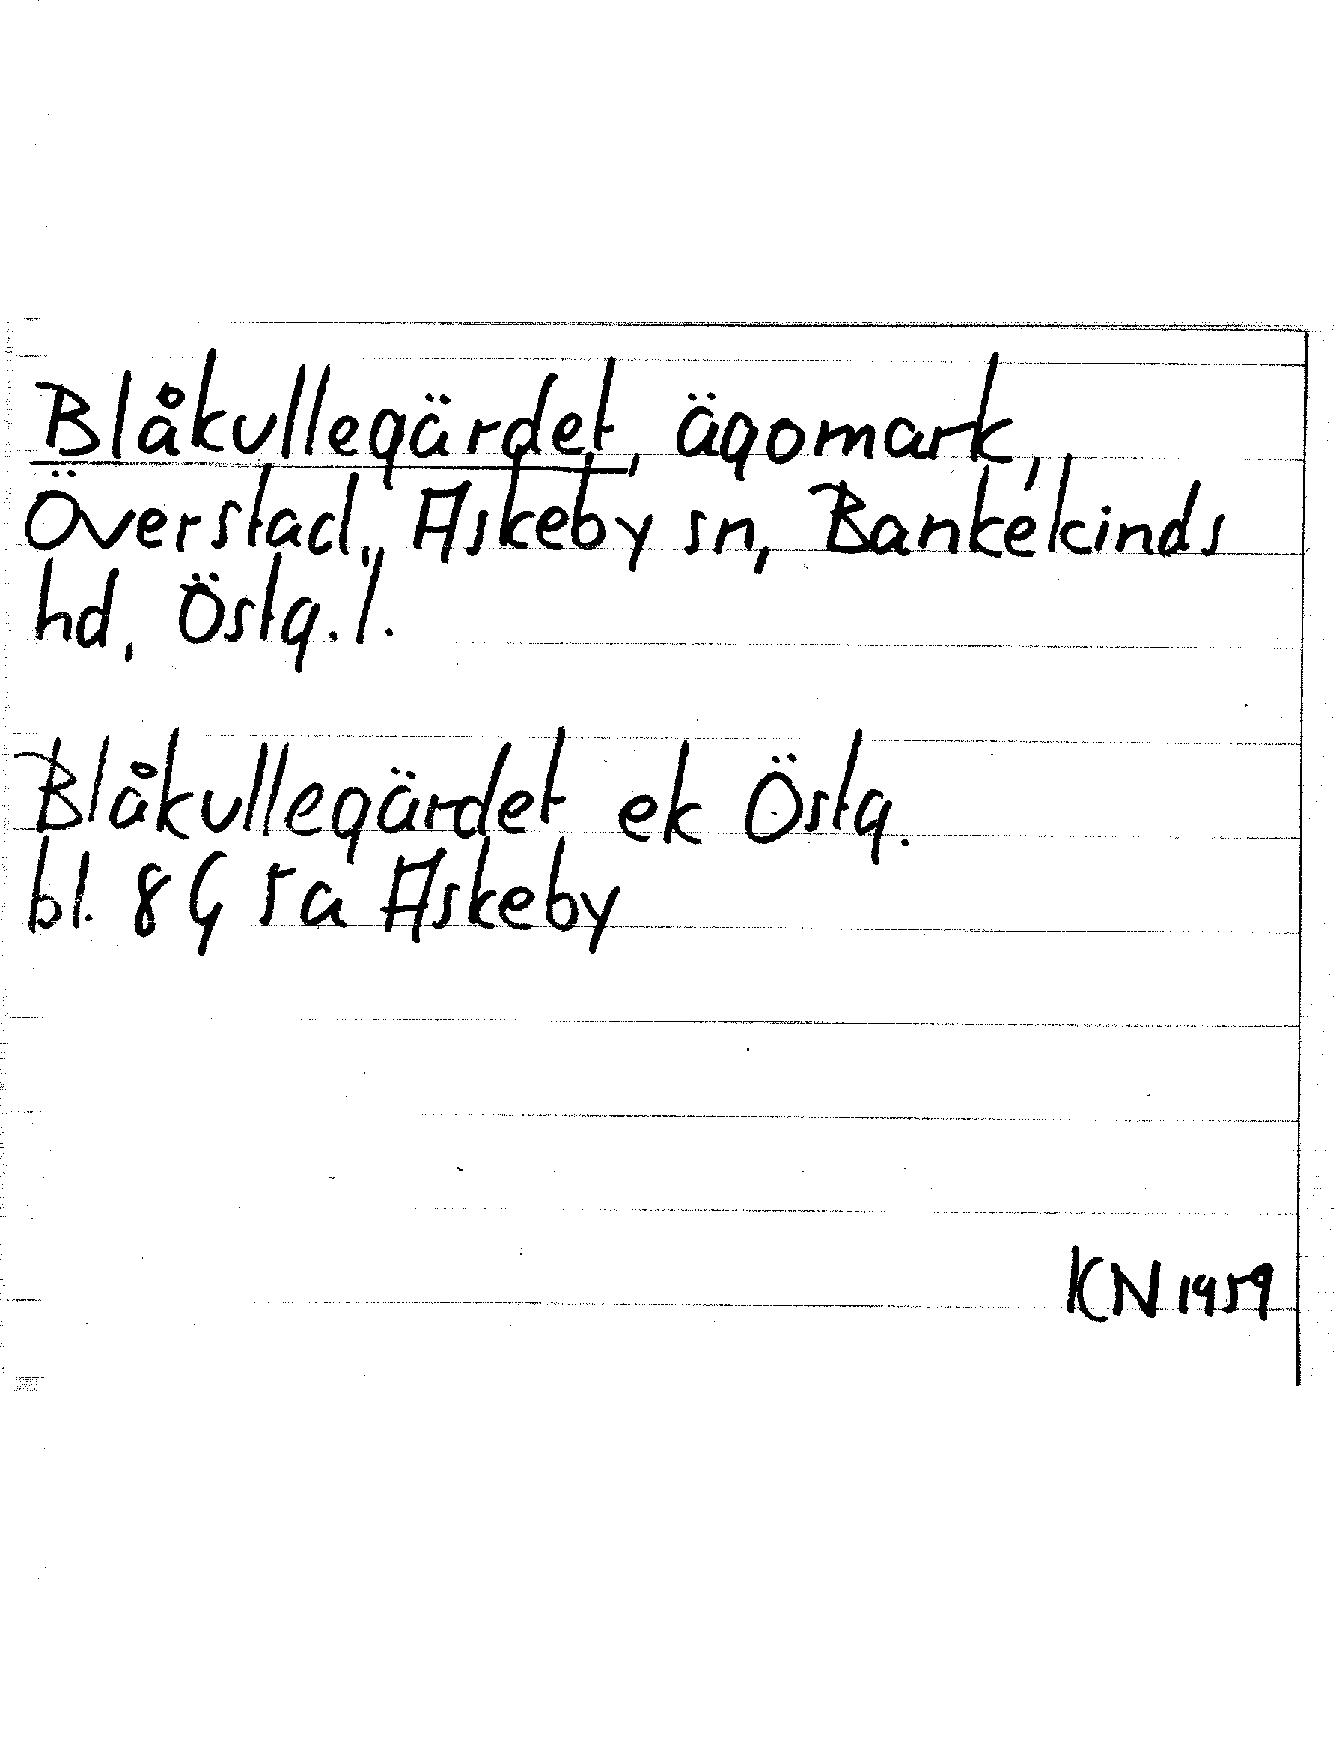 Blåkullegärdet, ägomark,
Överstad, Askeby sn, Bankekinds
hd, Östg.l.
Blåkullegärdet ek Östg.
bl. 8G 5a Askeby
KN 1959